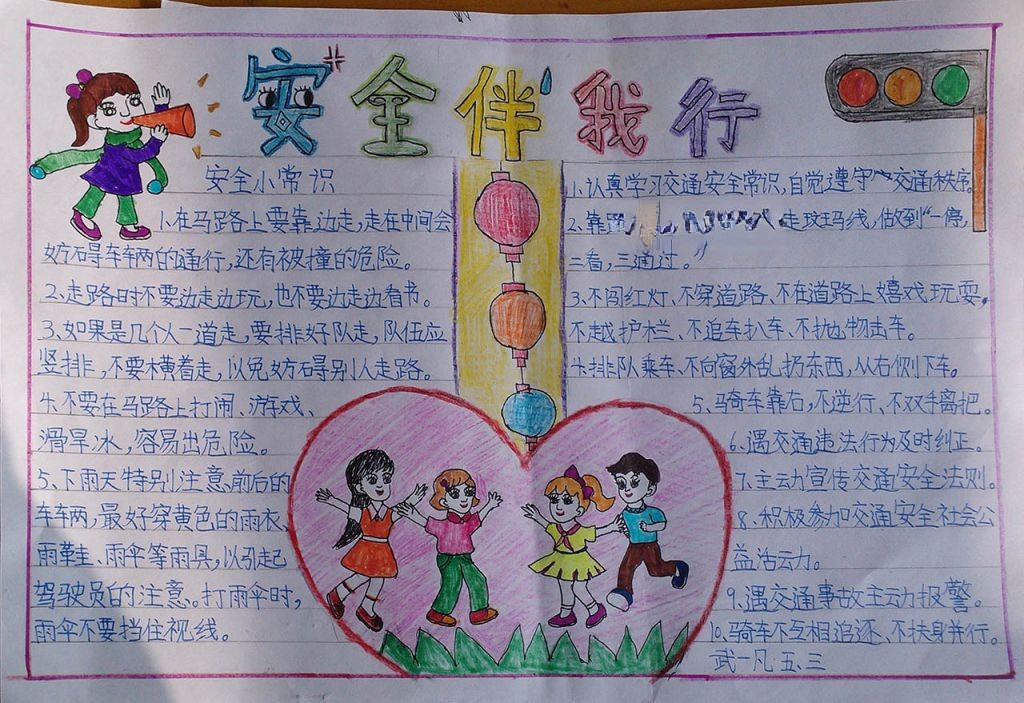 安全伴我行
安全小常识
1.在马路上要靠边走,走在中间会
妨碍车辆的通行,还有被撞的危险。
2.走路时不要边走边玩,也不要边走边看书。
3.如果是几个人一道走,要排好队走,队伍应
竖排,不要横着走,以免妨碍别人走路。
4.不要在马路上打闹、游戏、
滑旱冰,容易出危险。
5、下雨天特别注意前后的
车辆,最好穿黄色的雨衣、
雨鞋、雨伞等雨具,以引起
驾驶员的注意。打雨伞时,
雨伞不要挡住视线。
1.认真学习交通安全常识,自觉遵守交通秩序。
2.靠 走斑马线,做到“一停,
二看,三通过。”
3.不闯红灯、不穿道路、不在道路上嬉戏玩耍,
不越护栏、不追车扒车、不抛物击车。
4.排队乘车、不向窗外乱扔东西,从右侧下车。
5、骑车靠右,不逆行、不双手离把。
6、遇交通违法行为及时纠正。
7.主动宣传交通安全法则。
8、积极参加交通安全社会公
益活动。
9、遇交通事故主动报警。
10、骑车不互相追逐、不扶身并行。
武一凡 五、三